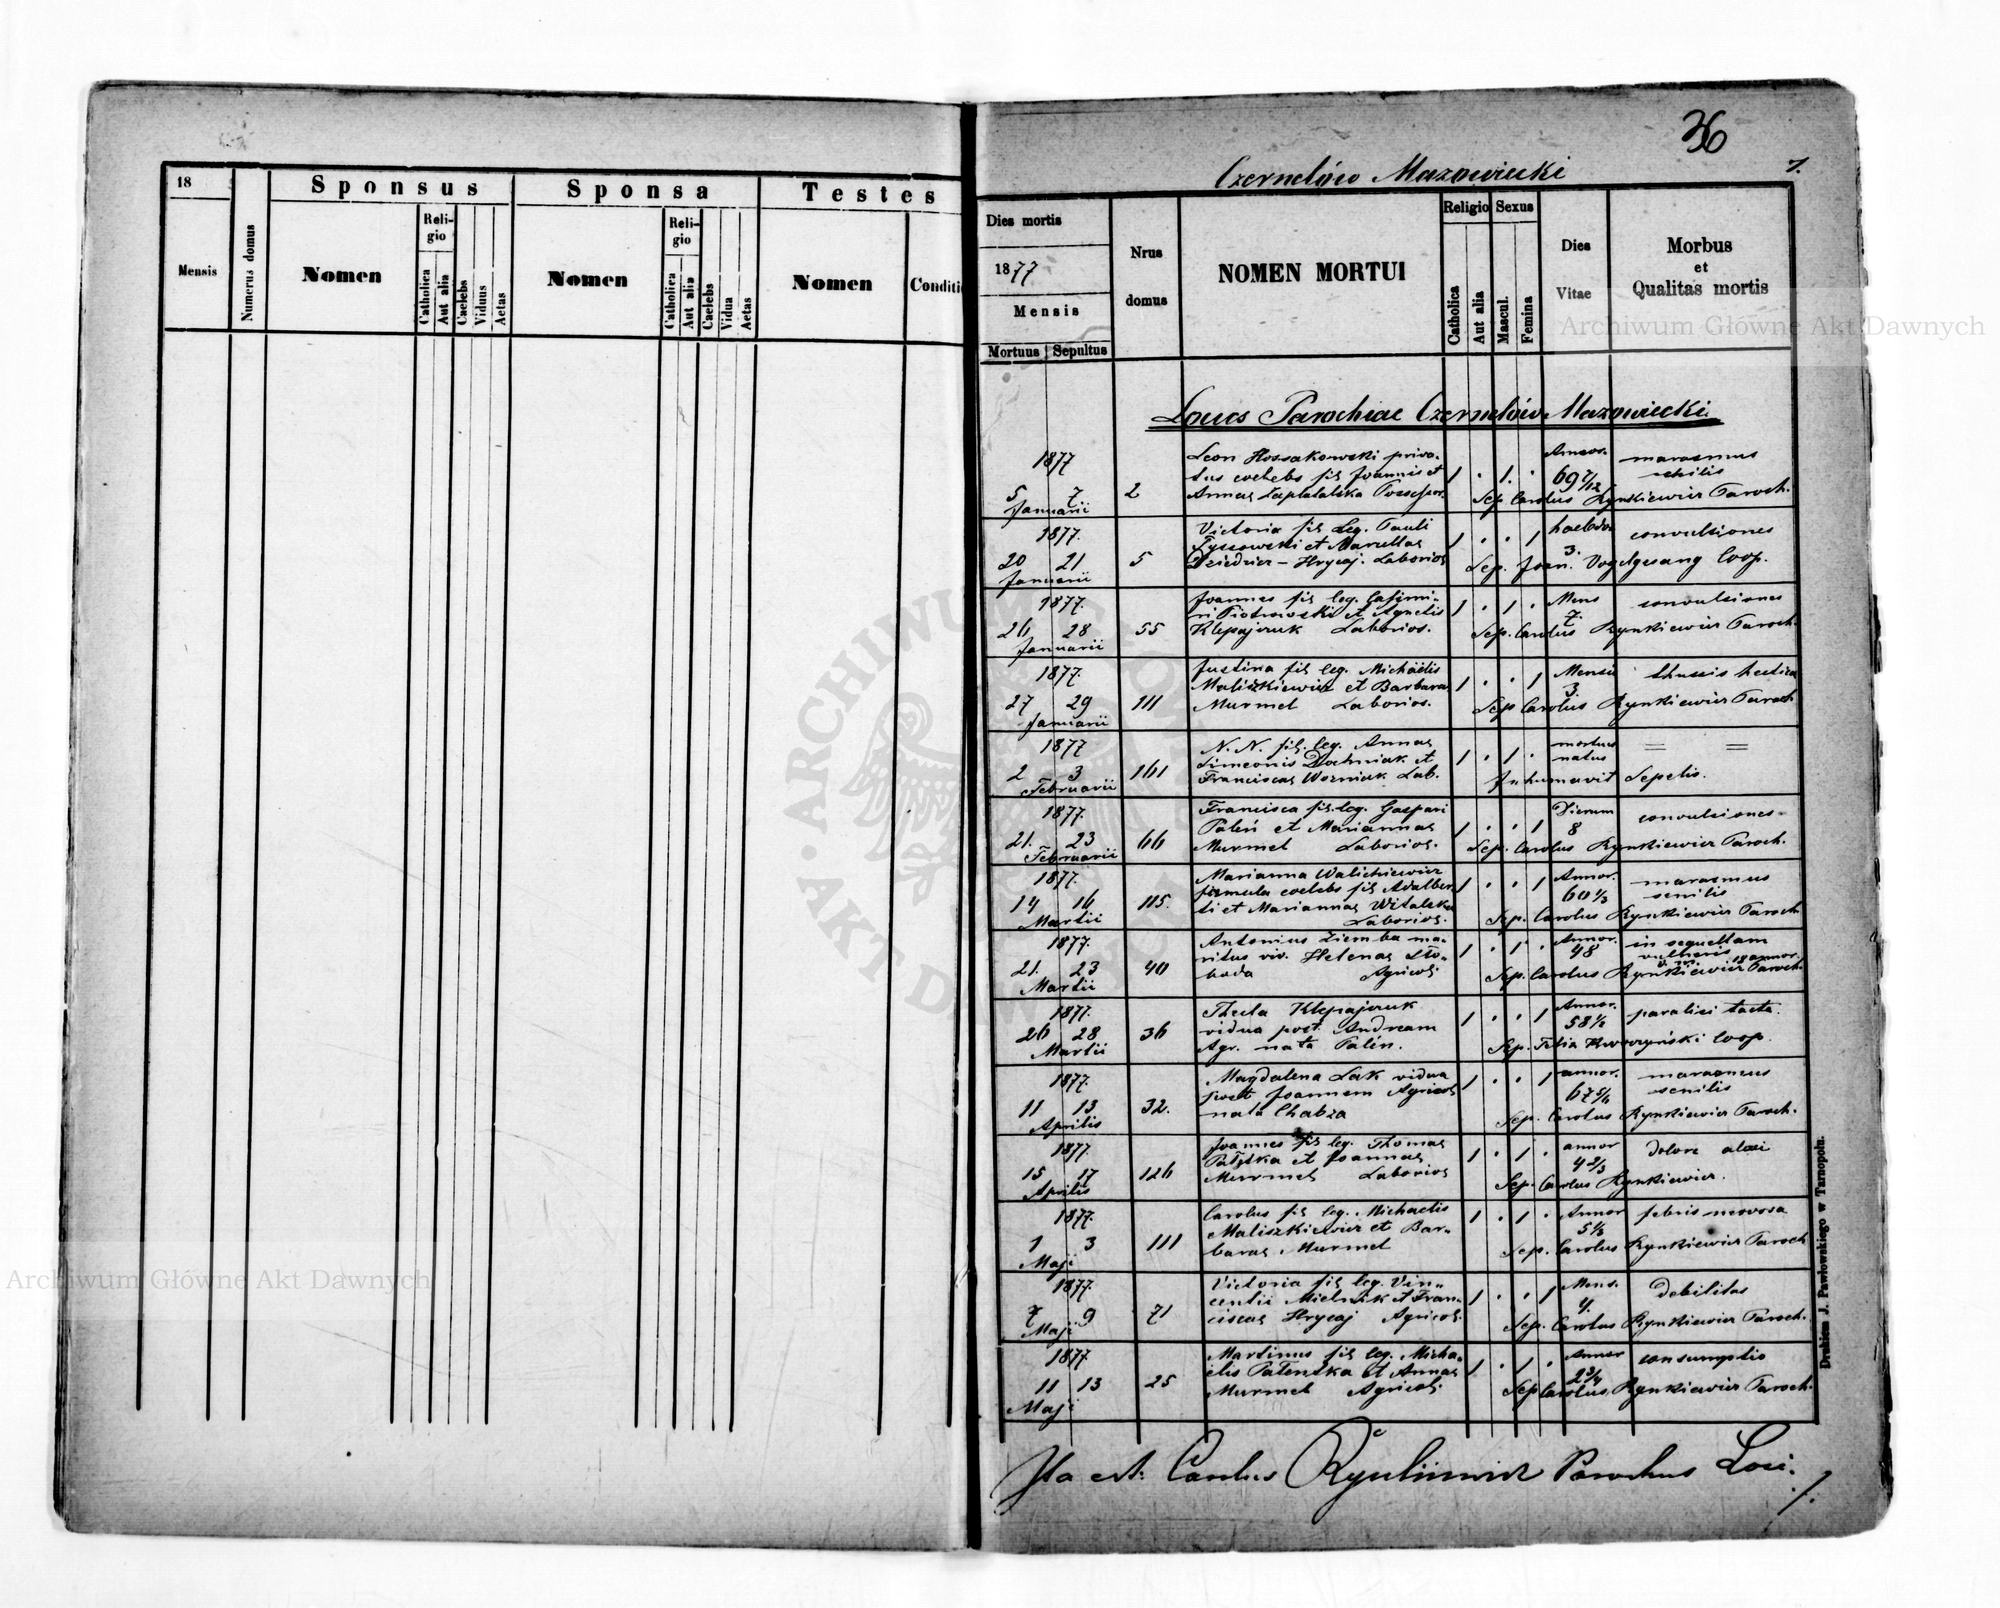 18
Mensis
Numerus domus
Sponsus
Nomen
Religio
Catholica
Aut alia
Caelebs
Viduus
Aetas
Sponsa
Nomen
Religio
Catholica
Aut alia
Caelebs
Vidua
Aetas
Testes
Nomen
Conditi
36
Czernelów Mazowiecki 7.
Dies mortis
1877
Mensis
Mortuus Sepultus
Nrus domus
NOMEN MORTUI
Religio
Catholica
Aut alia
Sexus
Mascul.
Femina
Dies Vitae
Morbus
et
Qualitas mortis
Locus Parochiae Czernelów Mazowiecki.
1877 Leon Hossakowski priva- Annor. marasmus
tus coelebs fil Joannis et 1 . 1 . 69 7/12 senilis
5 7 2 Annae Possessor. Sep. Carolus Rynkiewicz Paroch.
Januarii
1877. Victoria fil. leg. Pauli convulsiones
Tyssowski et 1 . . 1 3.
20 21 5 Dziedzic - Hrycaj. Laborios Sep. Joan. Vogelgesang Coop.
Januarii
1877. Joannes fil. leg. Casimi- 1 . 1 . Mens convulsiones
ri Piotrowski et Agnetis 7.
26 28 55 Klepajczuk Laborios. Sep. Carolus Rynkiewicz Paroch.
Januarii
1877. Justina fil. leg. Michaëlis Mensis thussis hectica
Maliszkiewicz et Barbara 1 . . 1 3.
27 29 111 Murmel Laborios. Sep. Carolus Rynkiewicz Paroch.
Januarii
1877 N. N. fil. leg. Annae mortuus = =
Simeonis Dochniak et 1 . 1 . natus
2 3 161 Franciscae Woźniak Lab. Inhumavit Sepelis.
Februarii
1877. Francisca fil. leg. Gaspari Dierum convulsiones
Paleń et Mariannae 1 . . 1 8
21. 23 66 Murmel Laborios. Sep. Carolus Rynkiewicz Paroch.
Februarii
1877. Marianna Walichiewicz Annor. marasmus
famula coelebs fil Adalber- 1 . . 1 60 1/3 senilis
14 16 115. ti et Mariannae Witalska
Martii Laborios. Sep. Carolus Rynkiewicz Paroch.
1877. Antonius Ziemba ma- 1 . 1 . Annor. in sequellam
ritus viv. Helenae Sło- 48 vulneris
21. 23 40 boda Agricol. Sep. Carolus Rynkiewicz Paroch. 18 annor.
Martii
1877. Thecla Klepajczuk 1 . . 1 Annor. paralisi tacta.
vidua post Andream 58 1/2
26 28 36 Agr. nata Paleń. Sep. Coop.
Martii
1877. Magdalena Łak vidua 1 . . 1 annor. marasmus
post Joannem Agricol senilis
11 13 32. nata Chabza Sep. Carolus Rynkiewicz Paroch.
Aprilis
1877. Joannes fil leg. Thomae 1 . 1 . annor dolore alvi
et Joannae 4 2/3
15 17 126 Murmel Laborios Sep. Carolus Rynkiewicz.
Aprilis
1877. Carolus fil leg. Michaelis 1 . 1 . Annor febris nervosa
Maliszkiewicz et Bar- 5 1/3
1 3 111 barae Murmel Sep. Carolus Rynkiewicz Paroch
Maji
1877. Victoria fil leg. Vin- 1 . . 1 Mens. debilitas
centii Mielnik et Fran- 4.
7 9 71 ciscae Hrycaj Agricol. Sep. Carolus Rynkiewicz Paroch.
Maji
1877 Martinus fil leg. Micha- 1 . 1 . Annor consumptio
elis Paleńska et Annae 2 3/4
11 13 25 Murmel Agricol. Sep Carolus Rynkiewicz Paroch.
Maji
Ita est. Carolus Rynkiewicz Parochus Loci.
Drukiem J. Pawłowskiego w Tarnopolu.
Archiwum Główne Akt Dawnych
Archiwum Główne Akt Dawnych
ARCHIWUM GŁÓWNE AKT DAWNYCH